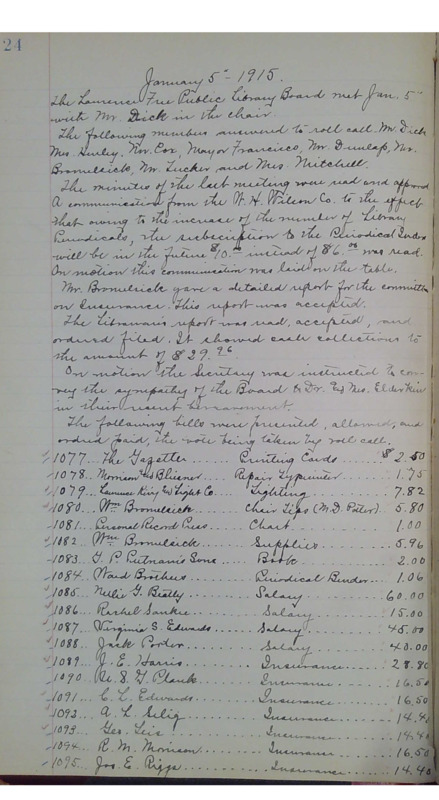 24
January 5 - 1915.
The Lawrence Free Public Library Board met Jan. 5
with Mr. Dick in the chair.
The following members answered to roll call. Mr. Dick
Mrs. Hurley, Mr. Cox, Mayor Francisco, Mr. Dunlap, Mr.
Bromelsick, Mr. Tucker, and Mrs. Mitchell.
The minutes of the last meeting were read and approved
A communication from the W. H. Wilson Co. to the effect
that owing to the increase of the number of Library
Periodicals, the subscription to the Periodical Index
will be in the future $10.00 instead of $6.00 was read.
On motion this communication was laid on the table.
Mr. Bromelsick gave a detailed report for the committee
on Insurance. This report was accepted.
The Librarian's report was read, accepted, and
ordered filed. It showed cash collections to
the amount of $29.96
On motion the Secretary was instructed to con-
vey the sympathy of the Board to Dr. & Mrs. Elderkin
in their recent bereavement.
The following bills were presented, allowed, and
ordered paid, the vote being taken by roll call.
1077... The Gazette Printing Cards $2.50
1078... Morrison & Bliesner Repair Typewriter 1.75
1079... Lawrence Ry & Light Co. Lighting 7.82
1080... Wm Bromelsick Chair Tips (M. D. Porter). 5.80
1081... Personal Record Press Chart 1.00
1082... Wm Bromelsick Supplies 5.96
1083... G. P. Putnam's Sons Book 2.00
1084... Ward Brothers Periodical Binder 1.06
1085... Nellie G. Beatly Salary 60.00
1086... Rachel Sankie Salary 15.00
1087... Virginia S. Edwards Salary 45.00
1088... Jack Porter Salary 40.00
1089... J. E. Harris Insurance 28.80
1090... S. T. Plank Insurance 16.50
1091... C. L. Edwards Insurance 16.50
1092... A. L. Selig Insurance 14.40
1093... Geo. Leis Insurance 14.40
1094... R. M. Morrison Insurance 16.50
1095... Jos. E. Riggs Insurance 14.40